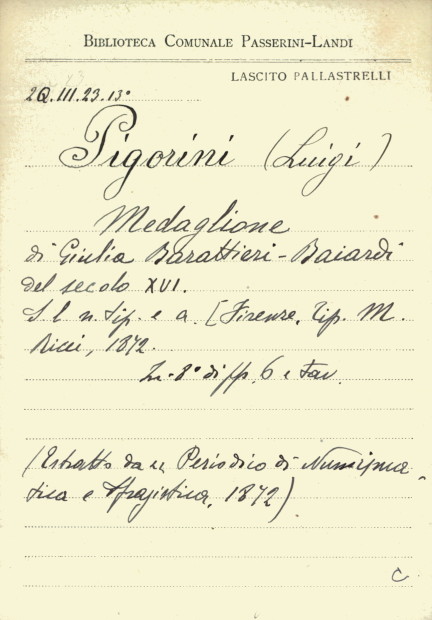 BIBLIOTECA COMUNALE PASSERINI-LANDI
LASCITO PALLASTRELLI
2Q.III.23.13°
Pigorini (Luigi)
Medaglione
di Giulia Barattieri-Baiardi
del secolo XVI.
S. l. n. tip. e a. [Firenze, Tip. M.
Ricci, 1872.
In-8° di pp. 6 e tav.
(Estratto da Periodico di Numisma-
tica e Sfragistica, 1872)
C